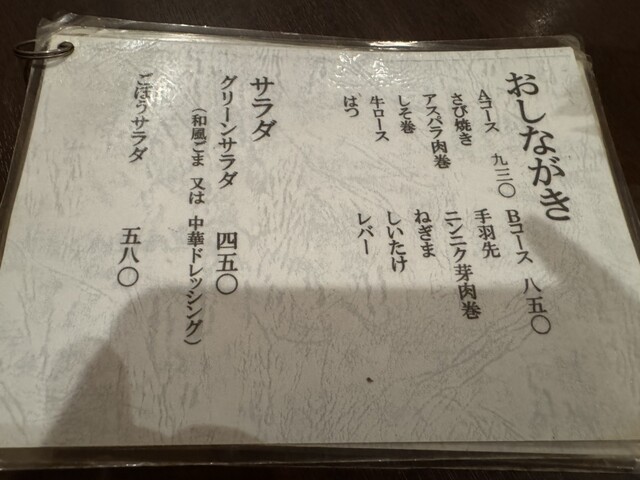 おしながき
Aコース 九三〇
さび焼き
アスパラ肉巻
しそ巻
牛ロース
はつ
Bコース 八五〇
手羽先
ニンニク芽肉巻
ねぎま
しいたけ
レバー
サラダ
グリーンサラダ 四五〇
（和風ごま 又は 中華ドレッシング）
ごぼうサラダ 五八〇